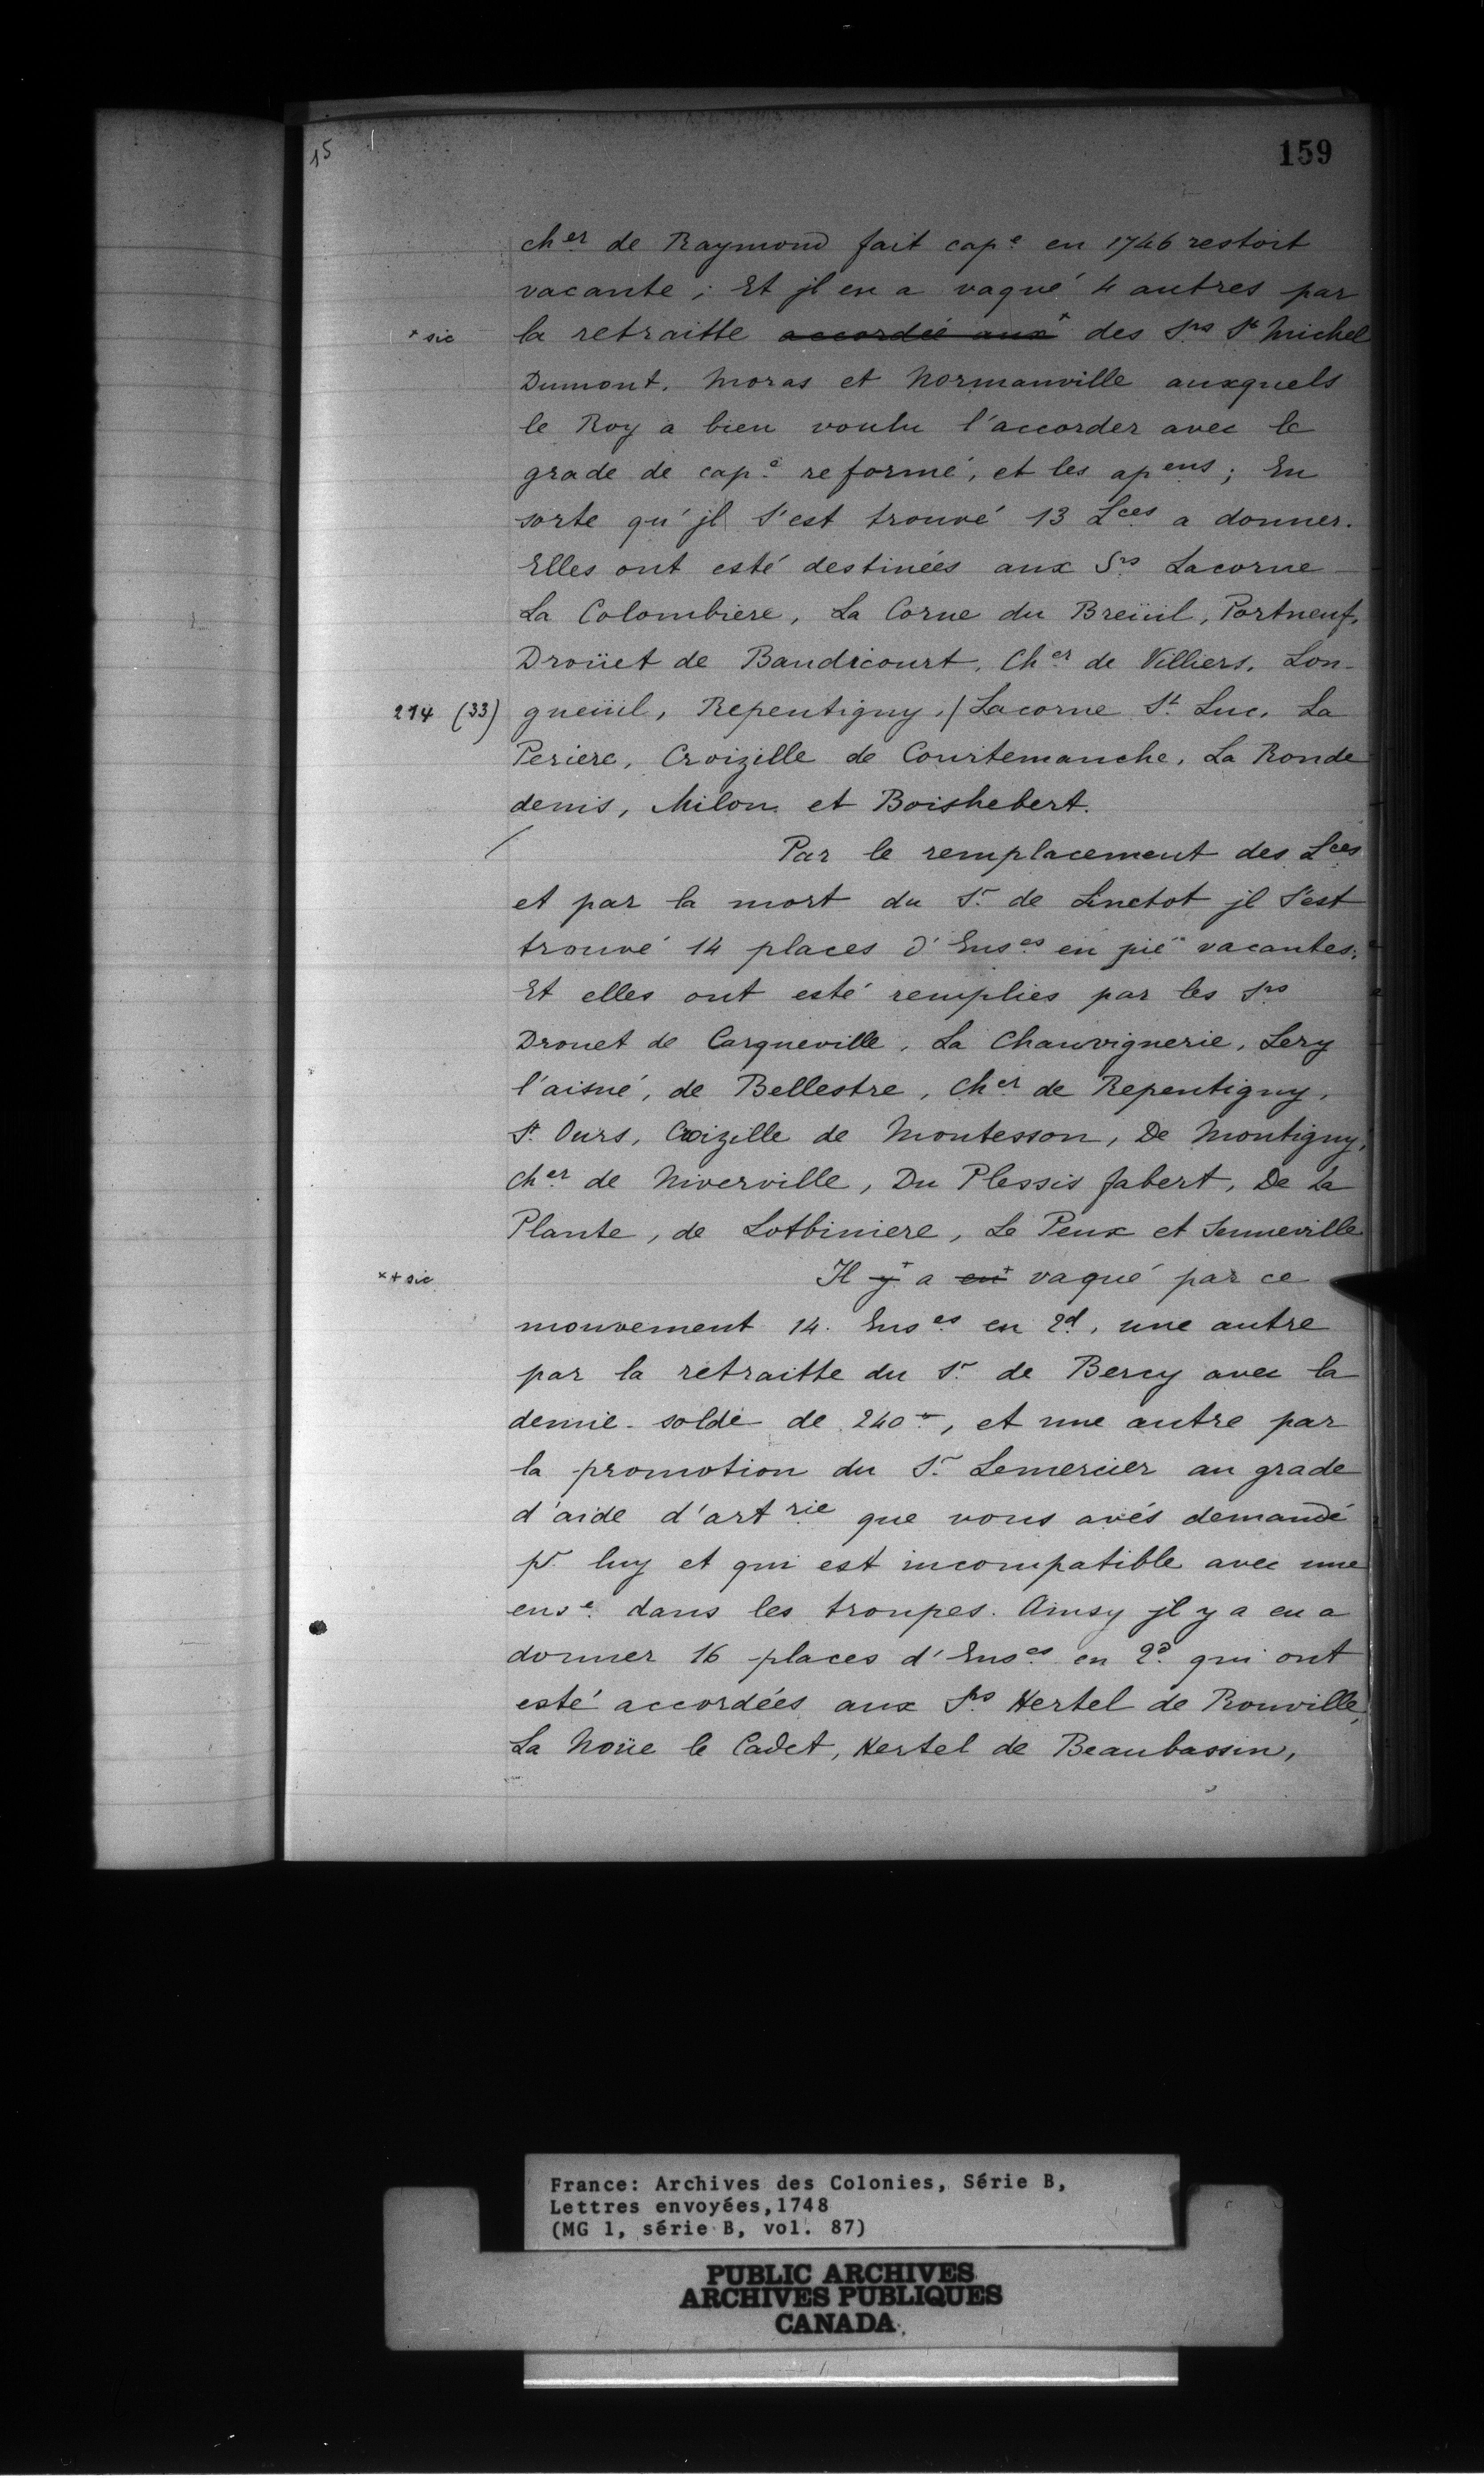 15
159
cher de Raymond fait cape en 1746 restoit
vacante ; Et jl en a vaqué 4 autres par
+ sic la retraitte accordée aux+ des Srs St Michel
Dumont, Moras et Normanville auxquels
le Roy a bien voulu l'accorder avec le
grade de cape reformé, et les apens ; En
sorte qu'jl s'est trouvé 13 Lces a donner.
Elles ont esté destinées aux Srs Lacorne
La Colombiere, La Corne du Breüil, Portneuf,
Droüet de Baudicourt, Cher de Villiers, Lon-
214 (33) gueüil, Repentigny, / Lacorne St Luc, La
Periere, Croizille de Courtemanche, La Ronde
denis, Milon et Boishebert.
Par le remplacement des Lces
et par la mort du Sr de Linctot jl s'est
trouvé 14 places d'Enses en pié vacantes.
Et elles ont esté remplies par les Srs
Drouet de Carqueville, La Chauvignerie, Lery
l'aisné, de Bellestre, Cher de Repentigny,
St Ours, Croizille de Montesson, De Montigny,
Cher de Niverville, Du Plessis fabert, De La
Plante, de Lotbiniere, Le Peux et Senneville
x + sic Il y+ a en+ vaqué par ce
mouvement 14. Enses en 2d, une autre
par la retraitte du Sr de Bercy avec la
demie-solde de 240tt, et une autre par
la promotion du Sr Lemercier au grade
d'aide d'artrie que vous avés demandé
pr luy et qui est incompatible avec une
ense dans les troupes. Ainsy jl y a eu a
donner 16 places d'Enses en 2d qui ont
esté accordées aux Srs Hertel de Rouville,
La Noüe le Cadet, Hertel de Beaubassin,
France: Archives des Colonies, Série B,
Lettres envoyées, 1748
(MG 1, série B, vol. 87)
PUBLIC ARCHIVES
ARCHIVES PUBLIQUES
CANADA